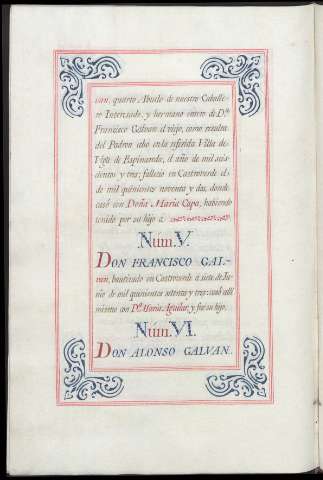 van, quarto Abuelo de nuestro Cavalle-
ro Interesado, y hermano entero de D.ⁿ
Francisco Galvan el viejo, como resulta
del Padron cabo en la referida Villa de
de Espinareda, el año de mil seis-
cientos y tres; falleció en Castroverde el
de de mil quinientos noventa y dos, donde
casó con Doña Maria Capa, habiendo
tenido por su hijo á
Núm. V.
DON FRANCISCO GAL-
van, bautizado en Castroverde a siete de Ju-
nio de mil quinientos setenta y tres: casó allí
mismo con D.ª Maria Aguilar, y fue su hijo.
Núm. VI.
DON ALONSO GALVAN.